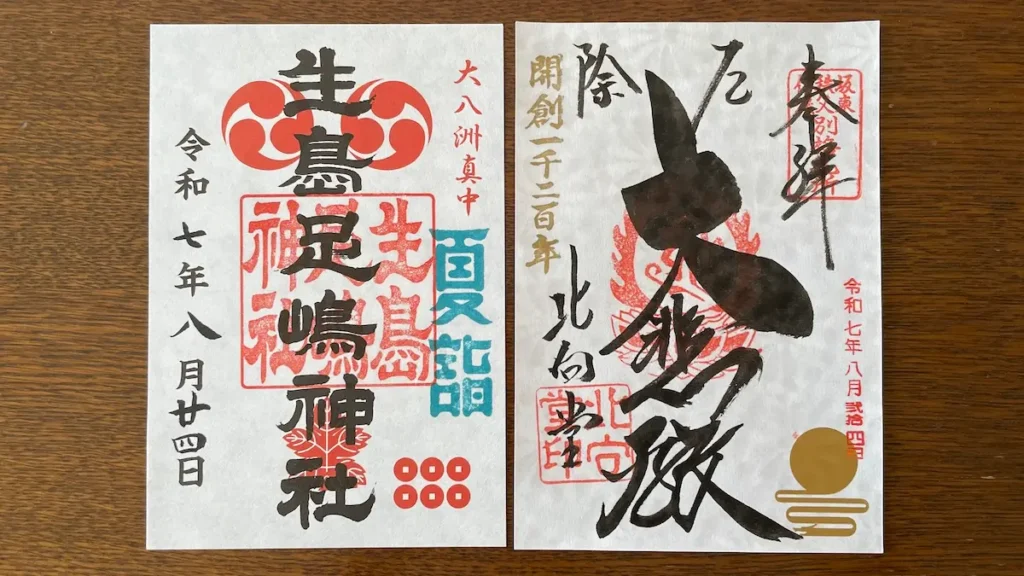 大八洲真中
夏詣
生島足嶋神社
生島
足嶋
神社
令和七年八月廿四日
奉拝
坂東
令和七年八月弐拾四日
厄除
大悲殿
北向堂
北向
堂印
開創一千二百年